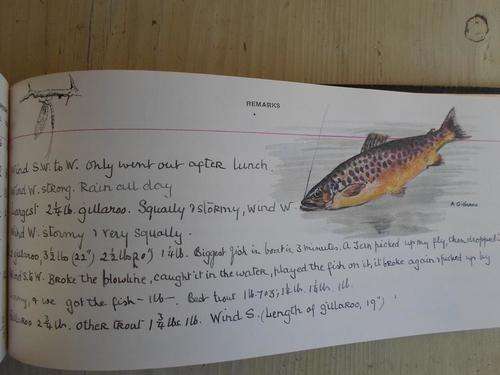 REMARKS
Wind S.W. to W. Only went out after lunch.
Wind W. strong. Rain all day
Largest 2¼ lb. gillaroo. Squally & stormy, Wind W
A Gillaroo
Wind W. stormy & very squally.
gillaroo, 3½ lbs (22") 2½ lb (20") 1¼ lb. Biggest fish in boat in 3 minutes. A Tern picked up my fly, then dropped
Wind S. to W. Broke the blowline, caught it in the water, played the fish on it, it broke again & picked up by
& we got the fish - 1 lb -. Best trout 1 lb 7 oz; 1½ lb. 1¼ lb. 1 lb.
Gillaroo 2¾ lb. Other trout 1¾ lbs 1 lb. Wind S. (Length of gillaroo, 19")